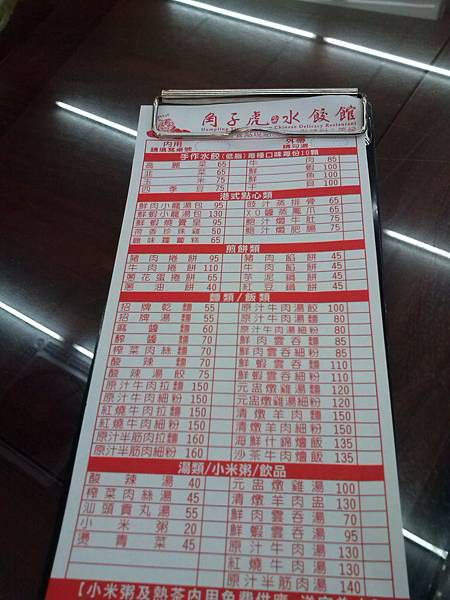 角子虎 水餃館
Dumpling Chinese Delicacy Restaurant
內用
請填寫桌號
外帶
請勾選
手作水餃(低脂)每種口味每份10顆
高麗菜 65
韭菜 65
玉米 75
四季豆 75
牛肉 85
鮮蝦 100
鮮魚 100
干貝 100
港式點心類
鮮肉小籠湯包 95
鮮蝦小龍湯包 130
鮮蝦燒賣皇 95
荷香珍珠雞 50
臘味蘿蔔糕 65
豉汁蒸排骨 65
XO醬蒸鳳爪 65
鮑汁燜牛肚 75
鮑汁燜肥腸 75
煎餅類
豬肉捲餅 95
牛肉捲餅 110
蔥花蛋捲餅 65
蔥油餅 40
豬肉餡餅 45
牛肉餡餅 45
芋泥鍋餅 45
紅豆鍋餅 45
麵類/飯類
招牌乾麵 55
招牌湯麵 55
麻醬麵 60
醡醬麵 70
榨菜肉絲麵 70
酸辣麵 70
酸辣湯餃 75
原汁牛肉拉麵 150
原汁牛肉細粉 150
紅燒牛肉拉麵 150
紅燒牛肉細粉 150
原汁半筋肉拉麵 160
原汁半筋肉細粉 160
原汁牛肉湯餃 100
原汁牛肉湯麵 80
原汁牛肉湯細粉 80
鮮肉雲吞麵 85
鮮肉雲吞細粉 85
鮮蝦雲吞麵 110
鮮蝦雲吞細粉 110
元盅燉雞湯麵 120
元盅燉雞湯細粉 120
清燉羊肉麵 150
清燉羊肉細粉 150
海鮮什錦燴飯 135
沙茶牛肉燴飯 135
湯類/小米粥/飲品
酸辣湯 40
榨菜肉絲湯 45
汕頭貢丸湯 55
小米粥 20
燙青菜 45
元盅燉雞湯 100
清燉羊肉盅 130
鮮肉雲吞湯 70
鮮蝦雲吞湯 95
原汁牛肉湯 130
紅燒牛肉湯 130
原汁半筋肉湯 140
【小米粥及熱茶內用免費供應